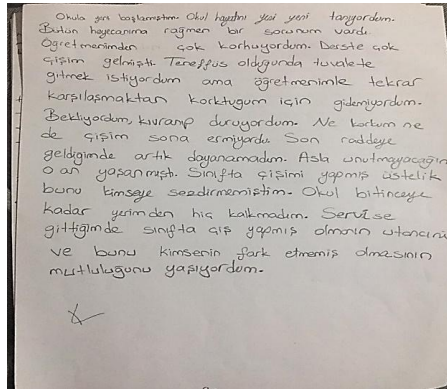 Okula yeni başlamıştım. Okul hayatını yeni yeni tanıyordum.
Bütün heyecanıma rağmen bir sorunum vardı.
Öğretmenimden çok korkuyordum. Derste çok
çişim gelmişti. Teneffüs olduğunda tuvalete
gitmek istiyordum ama öğretmenimle tekrar
karşılaşmaktan korktuğum için gidemiyordum.
Bekliyordum, kıvranıp duruyordum. Ne korkum ne
de çişim sona ermiyordu. Son raddeye
geldiğimde artık dayanamadım. Asla unutmayacağım
o an yaşanmıştı. Sınıfta çişimi yapmış üstelik
bunu kimseye sezdirmemiştim. Okul bitinceye
kadar yerimden hiç kalkmadım. Servise
gittiğimde sınıfta çiş yapmış olmanın utancını
ve bunu kimsenin fark etmemiş olmasının
mutluluğunu yaşıyordum.